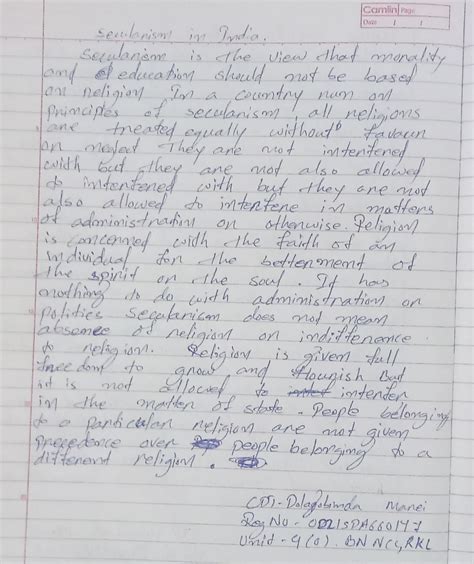 Camlin Page
Date / /
secularism in India.
Secularism is the view that morality
and education should not be based
on religion In a country run on
principles of secularism, all religions
are treated equally without favour
or neglect They are not interfered
with but they are not also allowed
to interfered with but they are not
also allowed to interfere in matters
of administration or otherwise. Religion
is concerned with the faith of an
individual for the betterment of
the spirit or the soul. It has
nothing to do with administration or
politics Secularism does not mean
absence of religion or indifference
to religion. Religion is given full
freedom to grow and flourish But
it is not allowed to interfer
in the matter of state. People belonging
to a particular religion are not given
precedence over people belonging to a
different religion.
Reg No -
Unit - 4(0). BN NCC, RKL